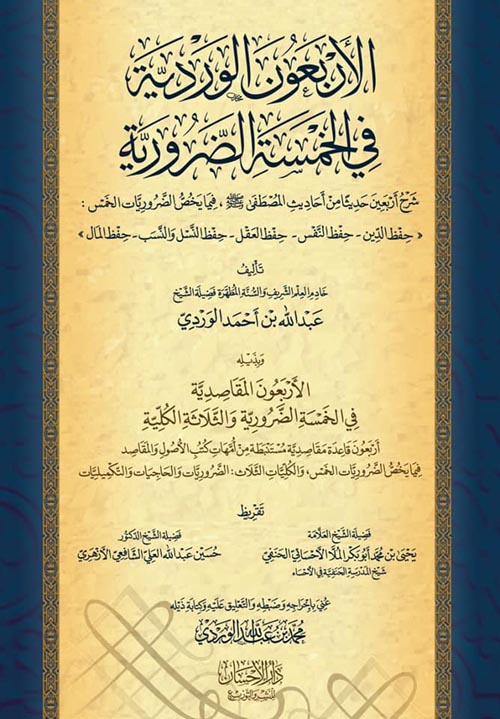 الأَرْبَعُونَ الوَرْدِيَّة
فِي الخَمْسَةِ الضَّرُورِيَّة
شَرْحُ أَرْبَعِينَ حَدِيثًا مِنْ أَحَادِيثِ المُصْطَفَى ﷺ ، فِيمَا يَخُصُّ الضَّرُورِيَّات الخَمْس :
« حِفْظ الدِّين - حِفْظ النَّفْس - حِفْظ العَقْل - حِفْظ النَّسْل وَالنَّسَب - حِفْظ المَال »
تَأْلِيفُ
خَادِمِ العِلْمِ الشَّرِيفِ وَالسُّنَّةِ المُطَهَّرَةِ فَضِيلَةُ الشَّيْخ
عَبْدُ اللهِ بْن أَحْمَد الوَرْدِيّ
وَبِذَيْلِهِ
الأَرْبَعُونَ المَقَاصِدِيَّة
فِي الخَمْسَةِ الضَّرُورِيَّة وَالثَّلَاثَةِ الكُلِّيَّة
أَرْبَعُونَ قَاعِدَة مَقَاصِدِيَّة مُسْتَنْبَطَة مِنْ أُمَّهَاتِ كُتُبِ الأُصُولِ وَالمَقَاصِد
فِيمَا يَخُصُّ الضَّرُورِيَّات الخَمْس، وَالكُلِّيَّات الثَّلَاث: الضَّرُورِيَّات وَالحَاجِيَات وَالتَّكْمِيلِيَّات
تَقْرِيظ
فَضِيلَة الشَّيْخ العَلَّامَة
يَحْيَى بن مُحَمَّد أَبُو بَكْر المُلَّا الأَحْسَائِيّ الحَنَفِيّ
شَيْخ المَدْرَسَةِ الحَنَفِيَّة فِي الأَحْسَاء
فَضِيلَة الشَّيْخ الدُّكْتُور
حُسَيْن عَبْدالله العَلِيّ الشَّافِعِيّ الأَزْهَرِيّ
عُنِيَ بِإِخْرَاجِهِ وَضَبْطِهِ وَالتَّعْلِيقِ عَلَيْهِ وَكِتَابَةِ ذَيْلِهِ
مُحَمَّد بن عَبْدالله الوَرْدِي
دَارُ الإِحْسَان
لِلنَّشْرِ وَالتَّوْزِيع